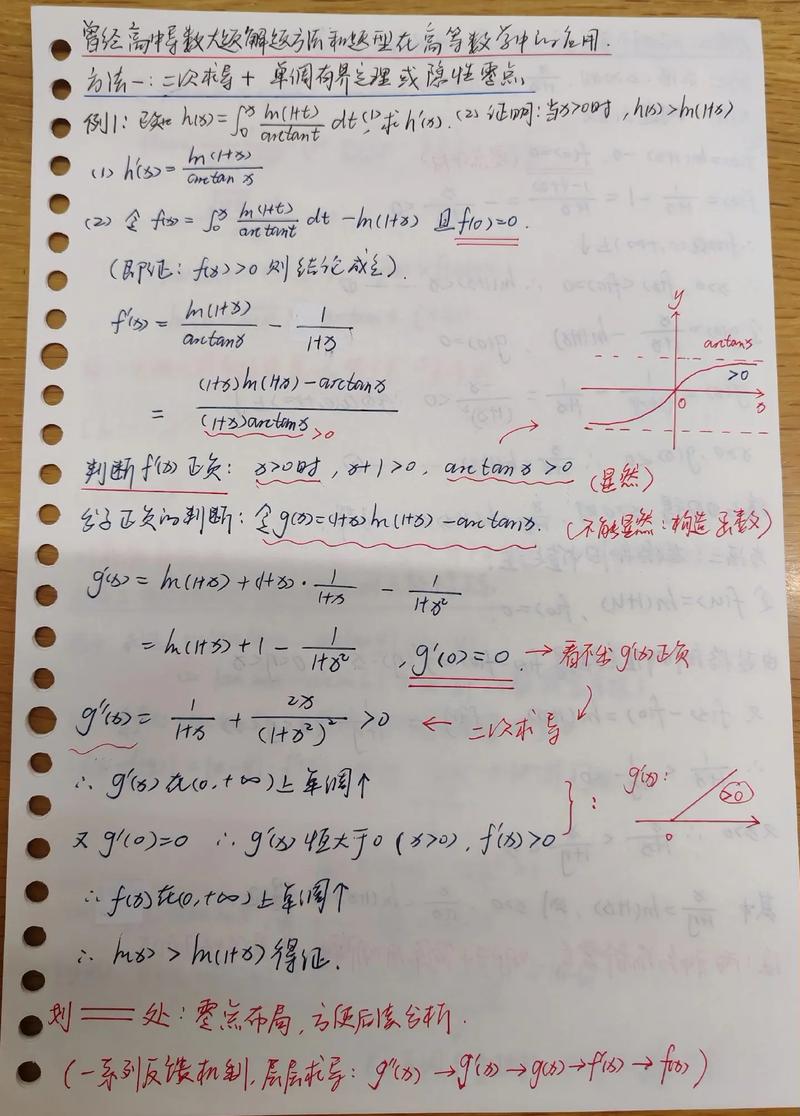 曾经高中导数大题解题方法和题型在高等数学中的应用.
方法一:二次求导+单调有界定理或隐性零点.
例1:已知 h(x)=∫₀ˣ ln(1+t)/arctant dt, (1)求h'(x). (2) 证明:当x>0时,h(x)>ln(1+x)
(1) h'(x)= ln(1+x)/arctan x
(2) 令 f(x)=∫₀ˣ ln(1+t)/arctant dt -ln(1+x) 且f(0)=0.
(即证:f(x)>0 则结论成立).
f'(x)= ln(1+x)/arctanx - 1/(1+x)
= ((1+x)ln(1+x)-arctanx)/((1+x)arctanx) >0
y
arctanx
>0
0
x
判断f'(x)正负: x>0时, x+1>0, arctanx>0 (显然)
分子正负的判断:令g(x)=(1+x)ln(1+x)-arctanx. (不能显然:构造函数)
g'(x)=ln(1+x)+(1+x)·1/(1+x) - 1/(1+x²)
=ln(1+x)+1- 1/(1+x²) , g'(0)=0. →看不出g'(x)正负
g''(x)= 1/(1+x) + 2x/(1+x²)² >0 ← 二次求导
∴ g'(x)在(0,+∞)上单调↑
又 g'(0)=0 ∴ g'(x)恒大于0 (x>0), f'(x)>0
} : g'(x): >0
0
∴ f(x)在(0,+∞)上单调↑
∴ h(x)>ln(1+x)得证.
划 ══ 处:零点布局,方便后续分析.
(一系列反馈机制,层层求导: g''(x)→g'(x)→g(x)→f'(x)→f(x))